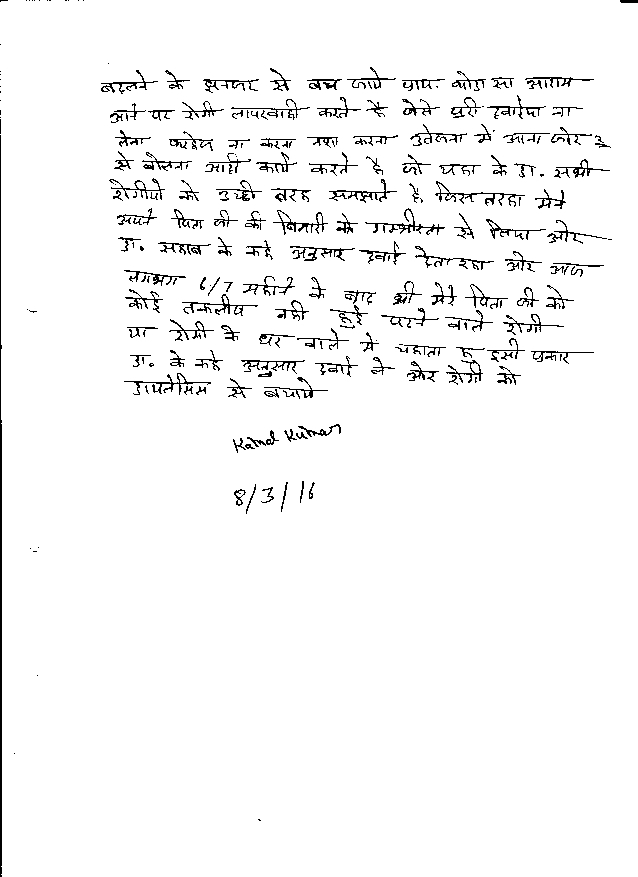 बदलने के झनझट से बच जाये प्राय: थोडा सा आराम
आने पर रोगी लापरवाही करते है जेसे पुरी दवाईया ना
लेना परहेज ना करना नशा करना उतेजना में आना जोर २
से बोलना आदी कार्य करते है जो यहा के डा. सभी
रोगीयो को अच्छी तरह समझाते है जिस तरहा मेने
अपने पिता जी की बिमारी को गम्भीरता से लिया और
डा. साहब के कहे अनुसार दवाई देता रहा और आज
लगभग 6/7 महीने के बाद भी मेरे पिता जी को
कोई तकलीफ नही हुई पढने वाले रोगी
या रोगी के घर वाले मे चहाता हू इसी प्रकार
डा. के कहे अनुसार दवाई ले और रोगी को
डायलेसिस से बचाये
Kamal Kumar
8/3/16